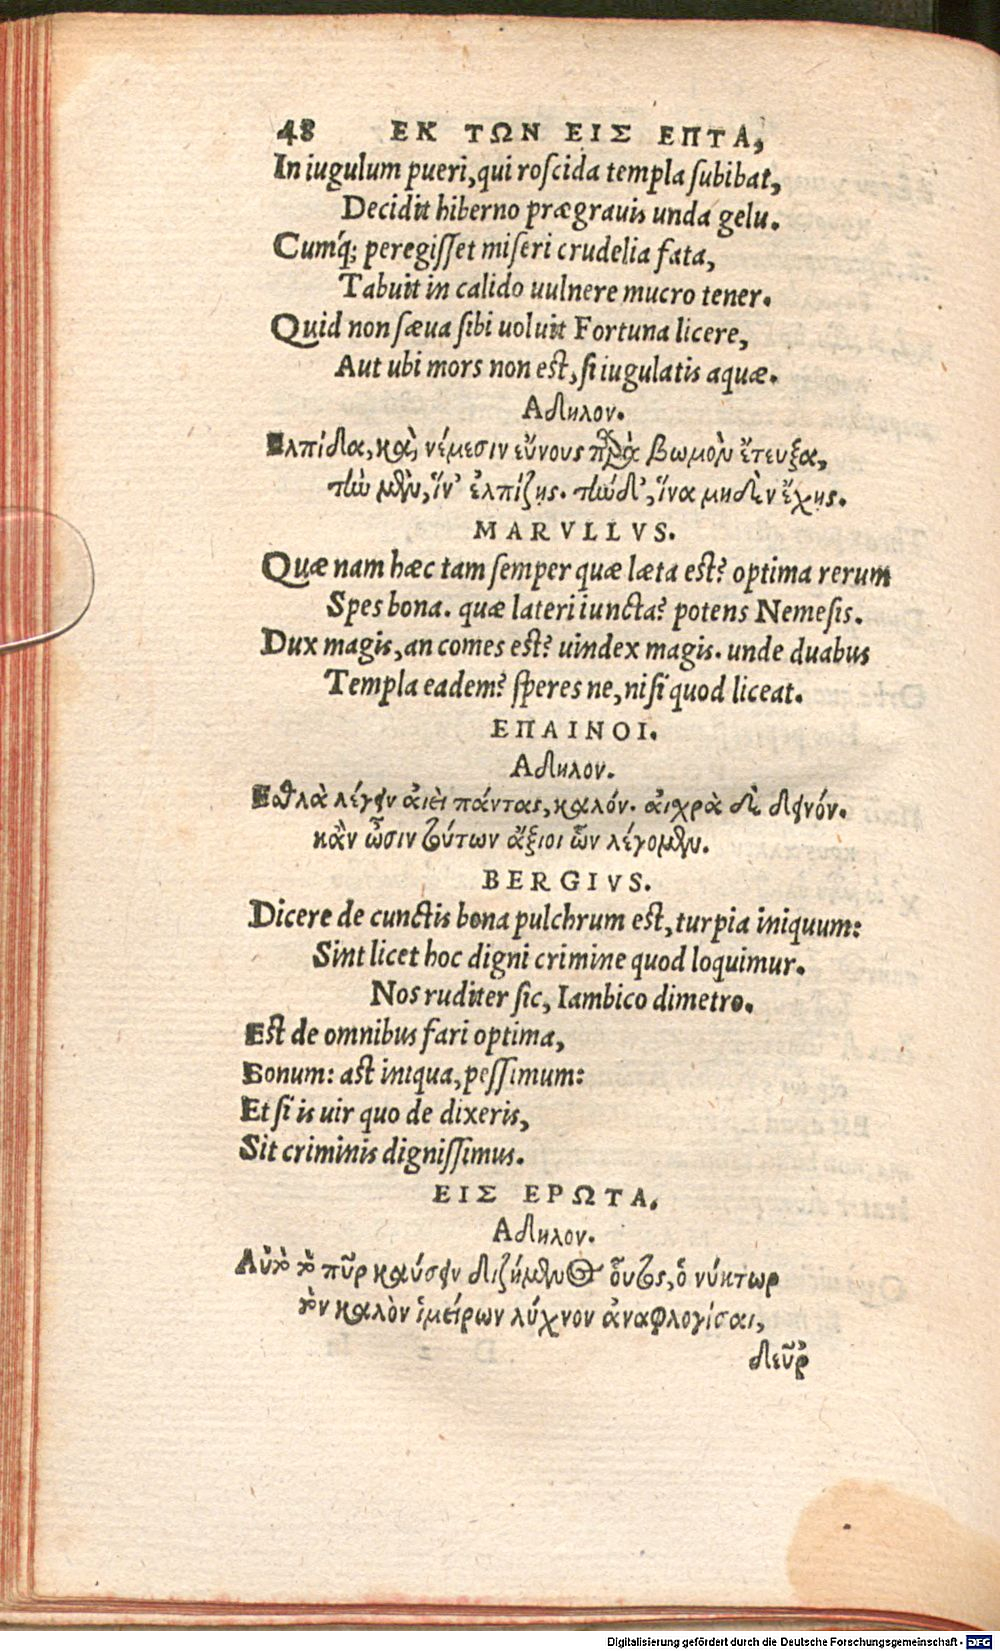 48 ΕΚ ΤΩΝ ΕΙΣ ΕΠΤΑ,
In iugulum pueri, qui roscida templa subibat,
Decidit hiberno prægrauis unda gelu.
Cumq́; peregisset miseri crudelia fata,
Tabuit in calido uulnere mucro tener.
Quid non sæua sibi uoluit Fortuna licere,
Aut ubi mors non est, si iugulatis aquæ.
Αδηλον.
Ελπίδα, καὶ νέμεσιν εὔνους παρὰ βωμὸν ἔτευξα,
τὼ μὲν, ἵν' ἐλπίζῃς. τὼ δ', ἵνα μηδὲν ἔχῃς.
MARVLLVS.
Quæ nam hæc tam semper quæ læta est? optima rerum
Spes bona. quæ lateri iuncta? potens Nemesis.
Dux magis, an comes est? uindex magis. unde duabus
Templa eadem? speres ne, nisi quod liceat.
ΕΠΑΙΝΟΙ.
Αδηλον.
Εσθλὰ λέγειν ἀιεὶ πάντας, καλόν. ἀιχρὰ δὲ δεινόν.
κἂν ὦσιν τούτων ἄξιοι ὧν λέγομεν.
BERGIVS.
Dicere de cunctis bona pulchrum est, turpia iniquum:
Sint licet hoc digni crimine quod loquimur.
Nos ruditer sic, Iambico dimetro.
Est de omnibus fari optima,
Bonum: ast iniqua, pessimum:
Et si is uir quo de dixeris,
Sit criminis dignissimus.
ΕΙΣ ΕΡΩΤΑ.
Αδηλον.
Αὐτὸ τὸ πῦρ καύσειν διζήμενος οὗτος, ὁ νύκτωρ
τὸν καλὸν ἱμείρων λύχνον ἀναφλογίσαι,
δεῦρ
Digitalisierung gefördert durch die Deutsche Forschungsgemeinschaft - DFG